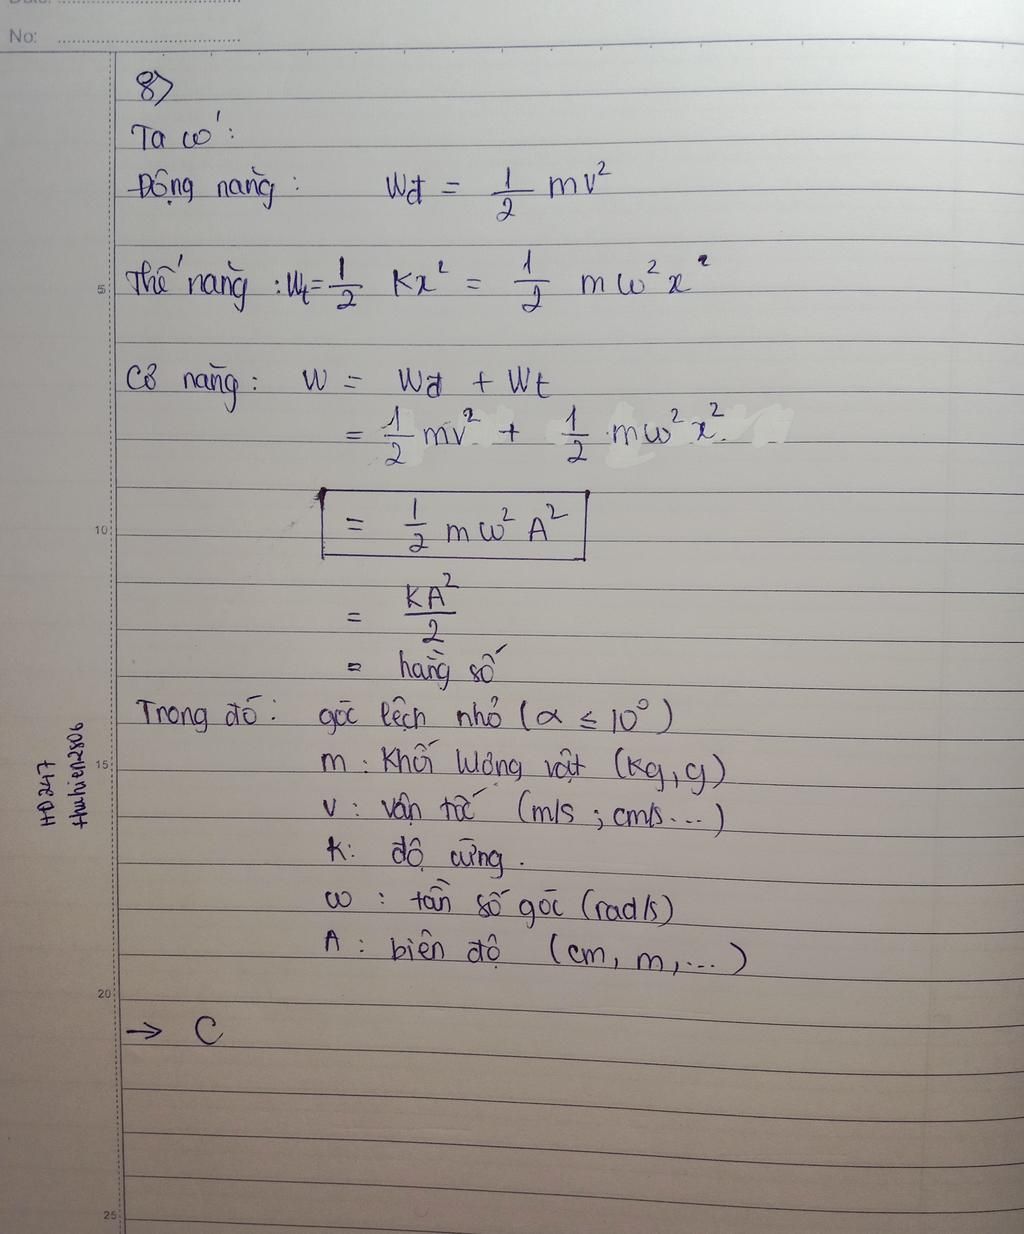 No:
8)
Ta có:
Động năng: Wđ = 1/2 mv²
Thế năng: Wt = 1/2 Kx² = 1/2 mω²x²
Cơ năng: W = Wđ + Wt
= 1/2 mv² + 1/2 mω²x²
= 1/2 mω²A²
= KA²/2
= hằng số
Trong đó: góc lệch nhỏ (α ≤ 10°)
m: Khối lượng vật (Kg, g)
v: vận tốc (m/s; cm/s...)
K: độ cứng.
ω: tần số góc (rad/s)
A: biên độ (cm, m,...)
→ C
5
10
15
20
25
HD247
thuhien2806